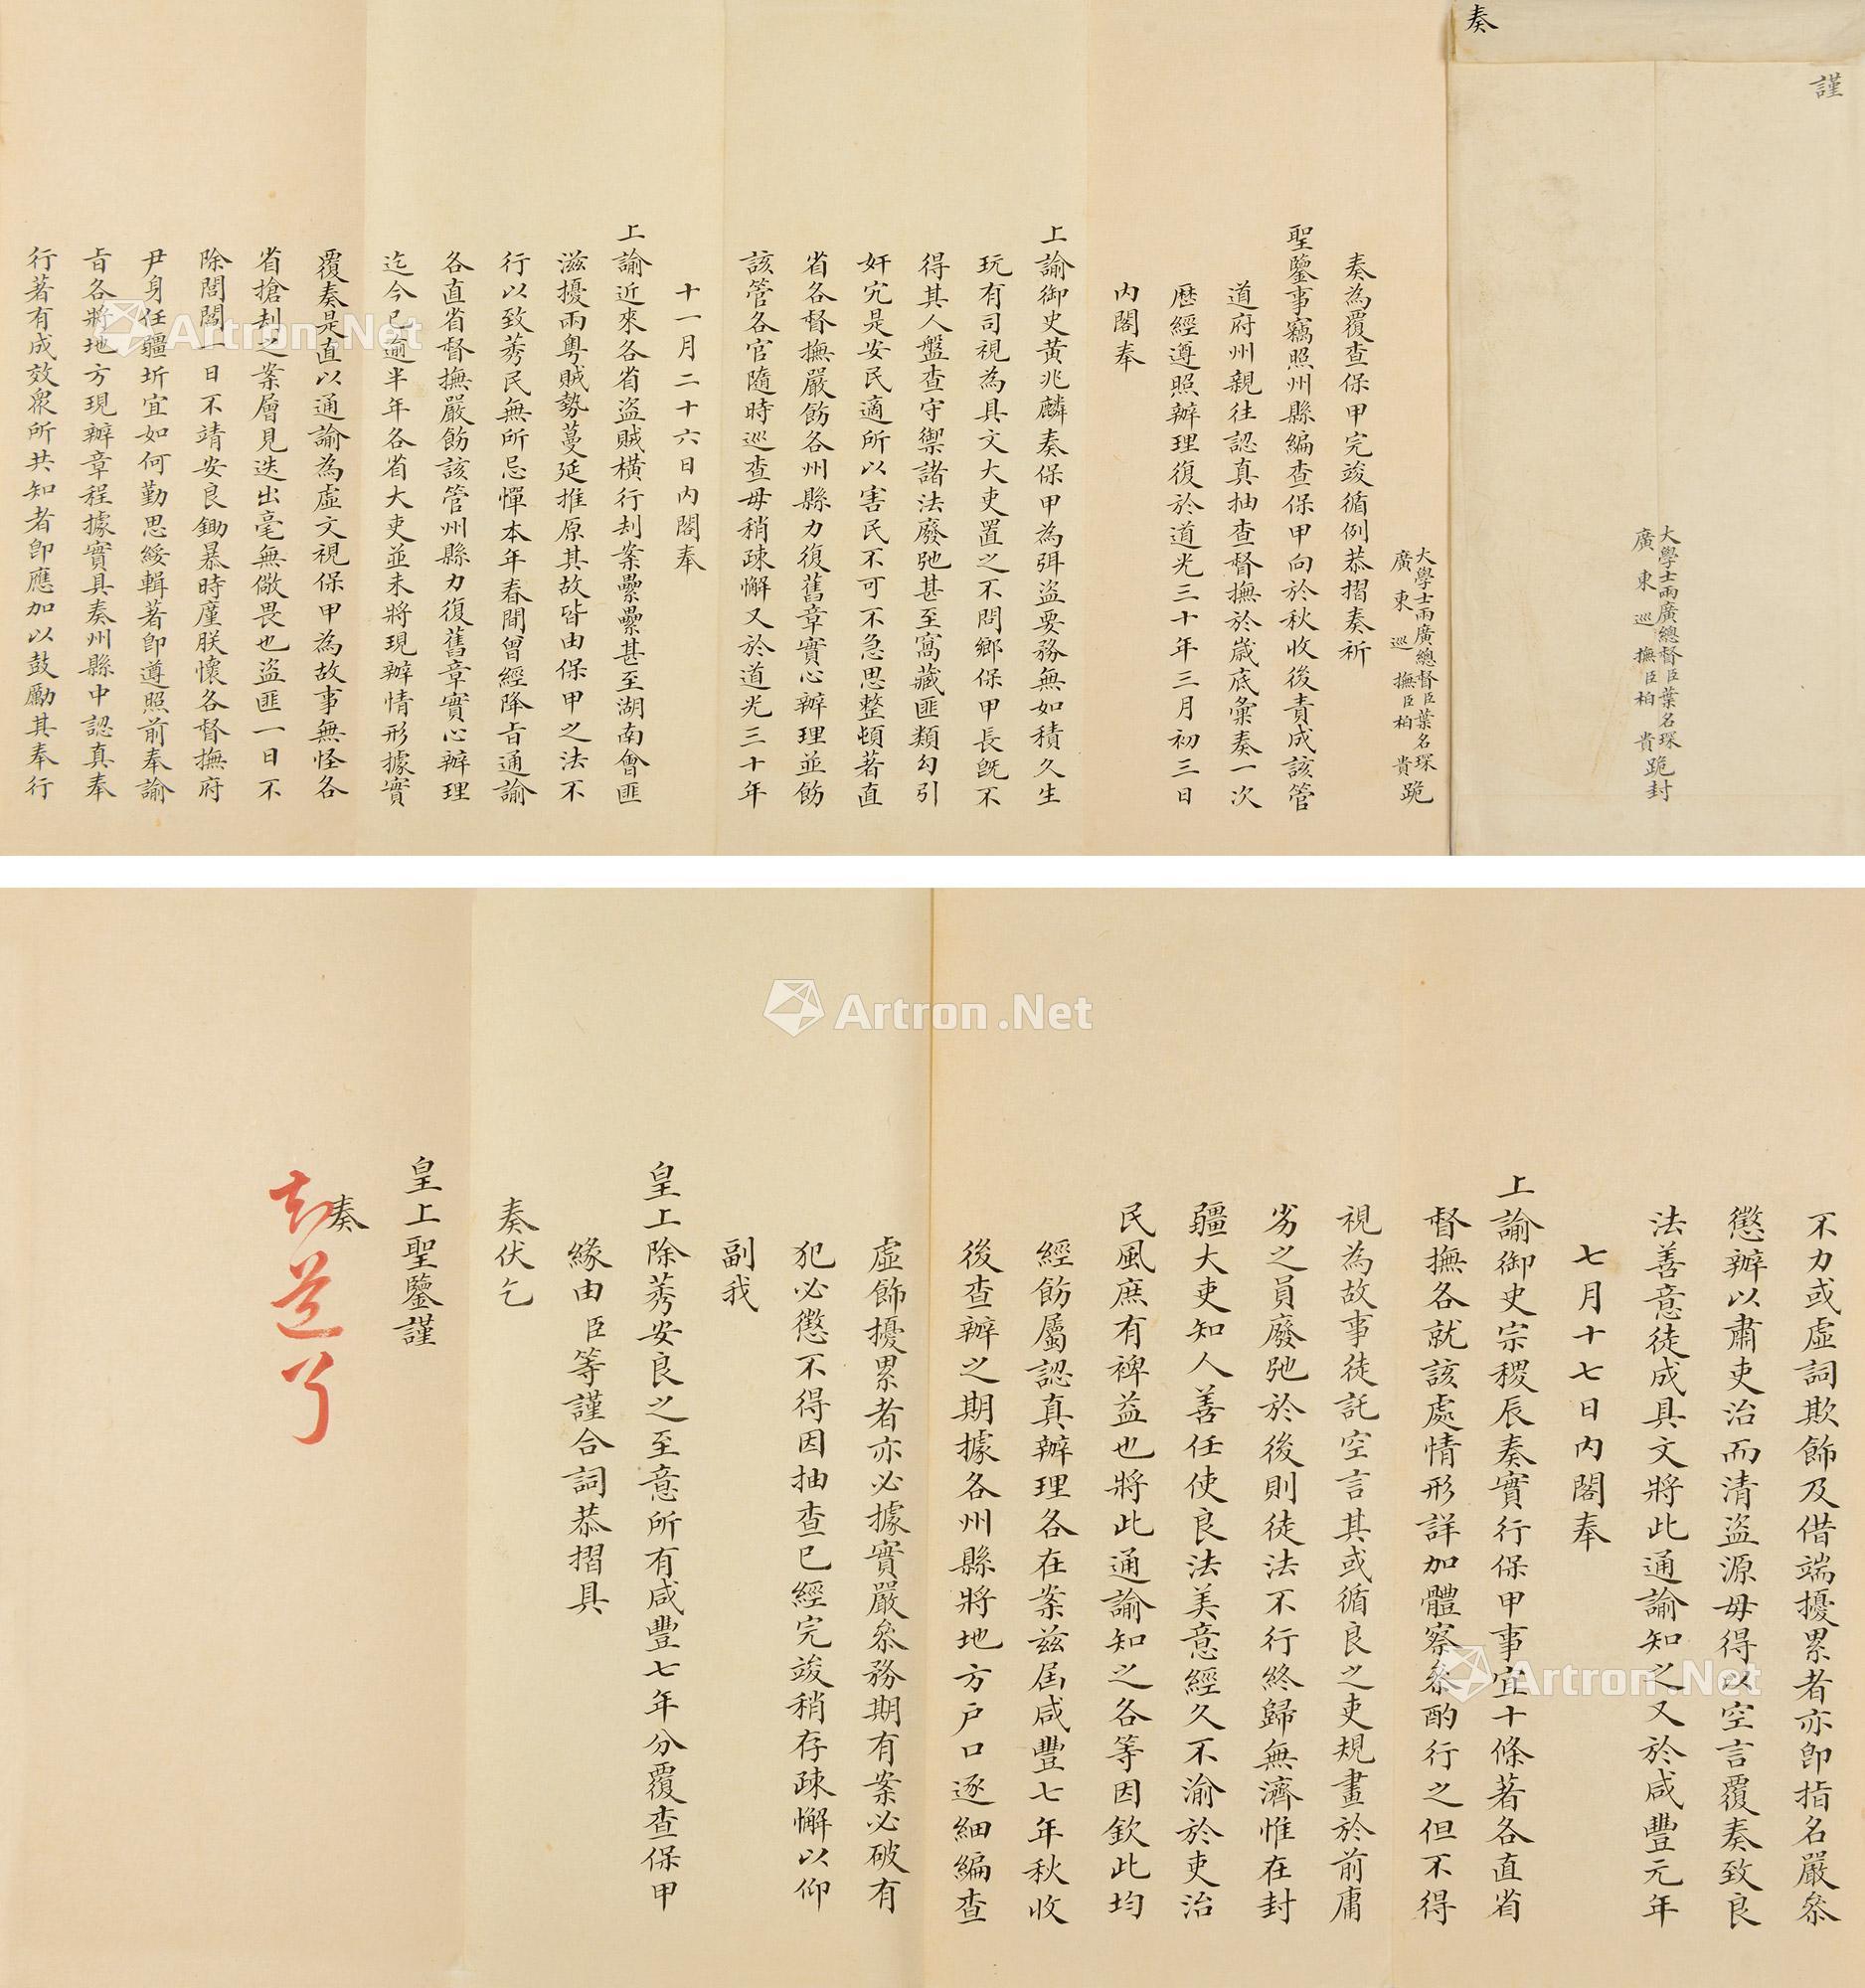 謹
奏
大學士兩廣總督臣葉名琛跪封
廣東巡撫臣柏貴
大學士兩廣總督臣葉名琛跪
廣東巡撫臣柏貴
奏為覆查保甲完竣循例恭摺奏祈
聖鑒事竊照州縣編查保甲向於秋收後責成該管
道府州親往認真抽查督撫於歲底彙奏一次
歷經遵照辦理復於道光三十年三月初三日
內閣奉
上諭御史黃兆麟奏保甲為弭盜要務無如積久生
玩有司視為具文大吏置之不問鄉保甲長既不
得其人盤查守禦諸法廢弛甚至窩藏匪類勾引
奸宄是安民適所以害民不可不急思整頓著直
省各督撫嚴飭各州縣力復舊章實心辦理並飭
該管各官隨時巡查毋稍疎懈又於道光三十年
十一月二十六日內閣奉
上諭近來各省盜賊橫行刦案纍纍甚至湖南會匪
滋擾兩粵賊勢蔓延推原其故皆由保甲之法不
行以致莠民無所忌憚本年春間曾經降旨通諭
各直省督撫嚴飭該管州縣力復舊章實心辦理
迄今已逾半年各省大吏並未將現辦情形據實
覆奏是直以通諭為虛文視保甲為故事無怪各
省搶刦之案層見迭出毫無儆畏也盜匪一日不
除閭閻一日不靖安良鋤暴時廑朕懷各督撫府
尹身任疆圻宜如何勤思綏輯著即遵照前奉諭
旨各將地方現辦章程據實具奏州縣中認真奉
行著有成效眾所共知者即應加以鼓勵其奉行
不力或虛詞欺飾及借端擾累者亦即指名嚴叅
懲辦以肅吏治而清盜源毋得以空言覆奏致良
法善意徒成具文將此通諭知之又於咸豐元年
七月十七日內閣奉
上諭御史宗稷辰奏實行保甲事宜十條著各直省
督撫各就該處情形詳加體察叅酌行之但不得
視為故事徒託空言其或循良之吏規畫於前庸
劣之員廢弛於後則徒法不行終歸無濟惟在封
疆大吏知人善任使良法美意經久不渝於吏治
民風庶有裨益也將此通諭知之各等因欽此均
經飭屬認真辦理各在案茲屆咸豐七年秋收
後查辦之期據各州縣將地方戶口逐細編查
虛飾擾累者亦必據實嚴叅務期有案必破有
犯必懲不得因抽查已經完竣稍存疎懈以仰
副我
皇上除莠安良之至意所有咸豐七年分覆查保甲
緣由臣等謹合詞恭摺具
奏伏乞
皇上聖鑒謹
奏
知道了
Artron.Net
Artron.Net
Artron.Net